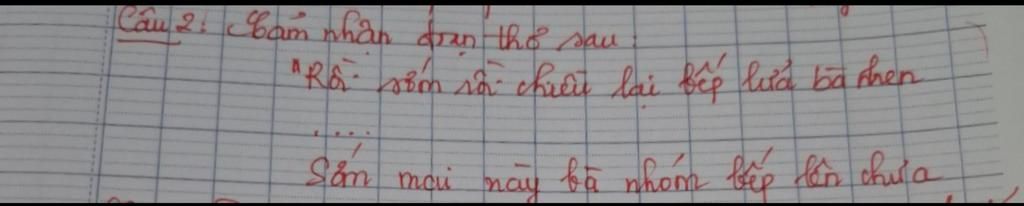 Câu 2: Cảm nhận đoạn thơ sau:
"Rồi sớm rồi chiều lại bếp lửa bà nhen
....
Sớm mai này bà nhóm bếp lên chưa